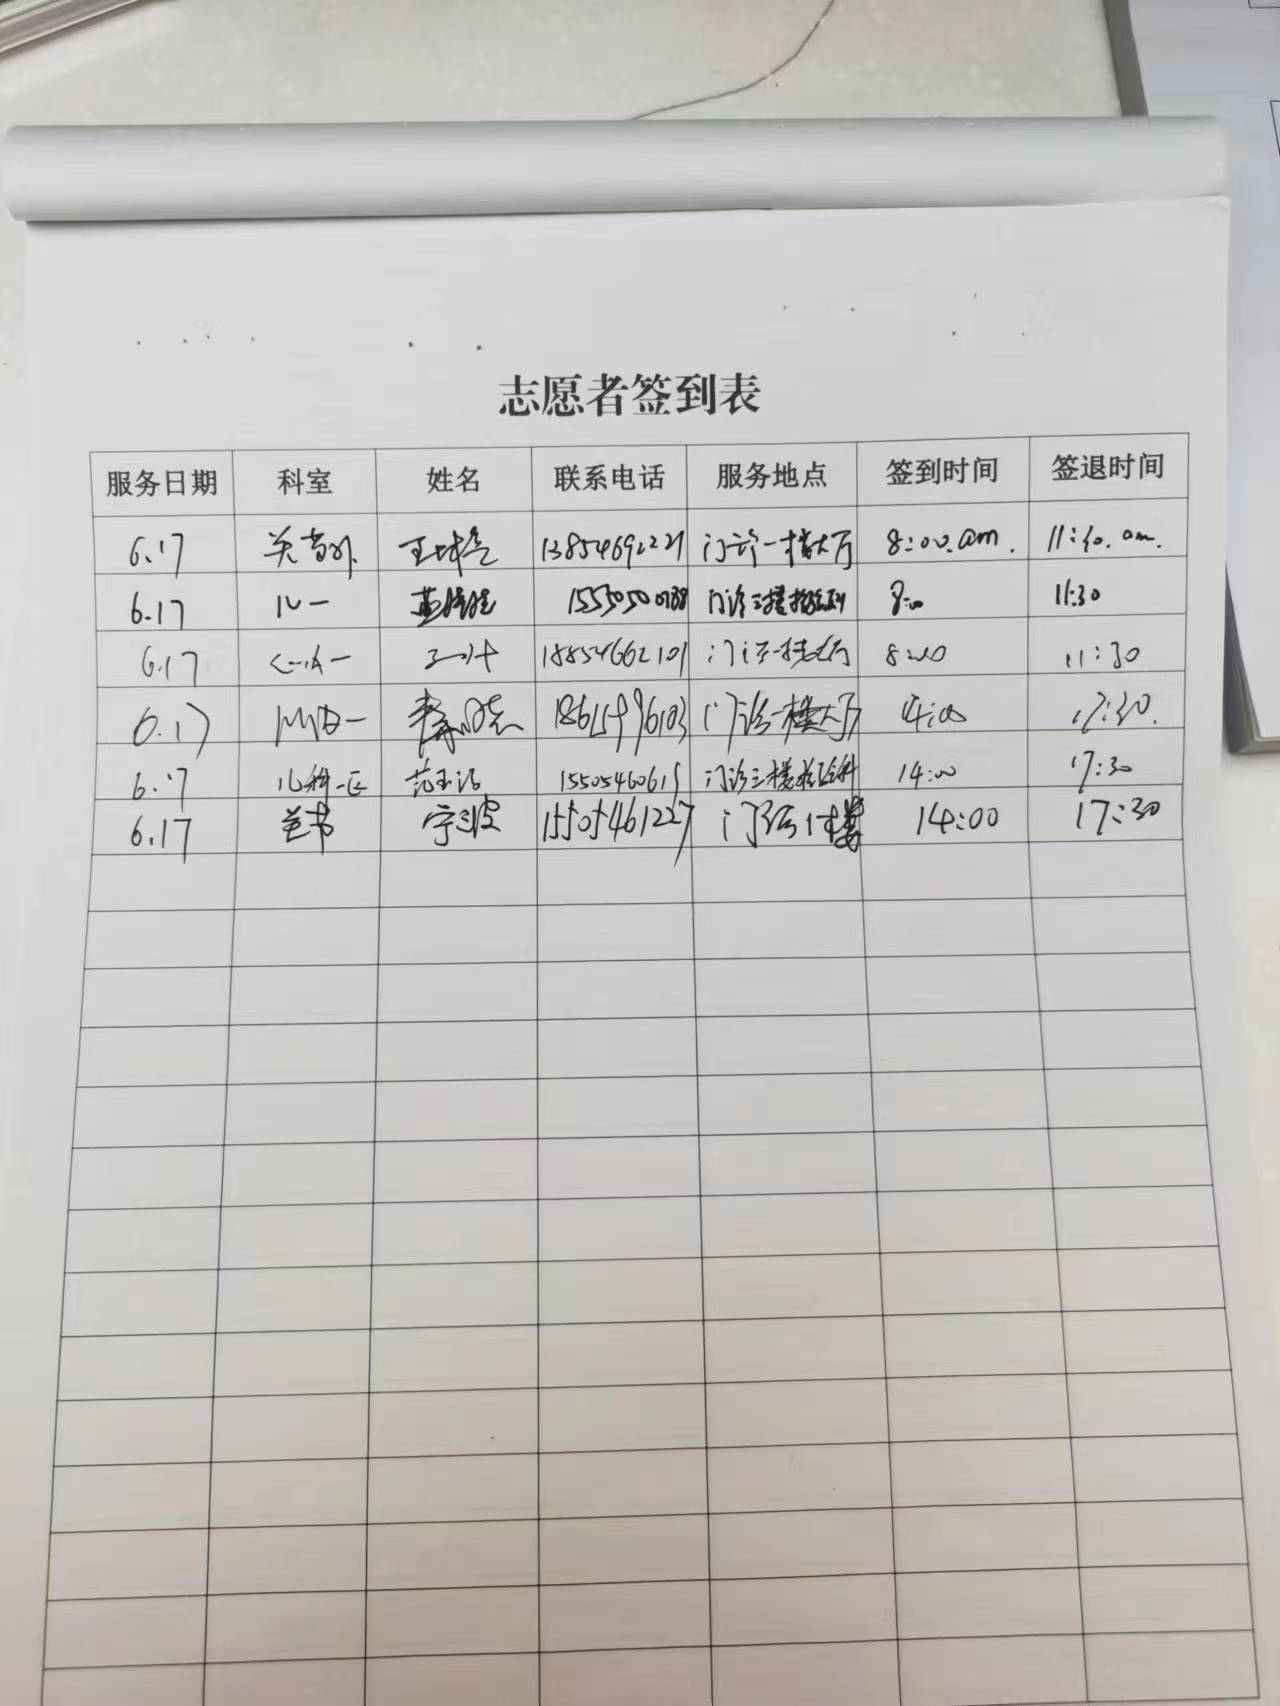 志愿者签到表
服务日期 科室 姓名 联系电话 服务地点 签到时间 签退时间
6.17 关节外 13854692221 门诊一楼大厅 8:00.am. 11:30.am.
6.17 儿一 门诊三楼检验科 8:00 11:30
6.17 心内一 18854662101 门诊一楼大厅 8:00 11:30
6.17 门诊一楼大厅 14:00 17:30.
6.17 儿科一区 15505460615 门诊三楼检验科 14:00 17:30
6.17 宁波 15505461227 门诊1楼 14:00 17:30